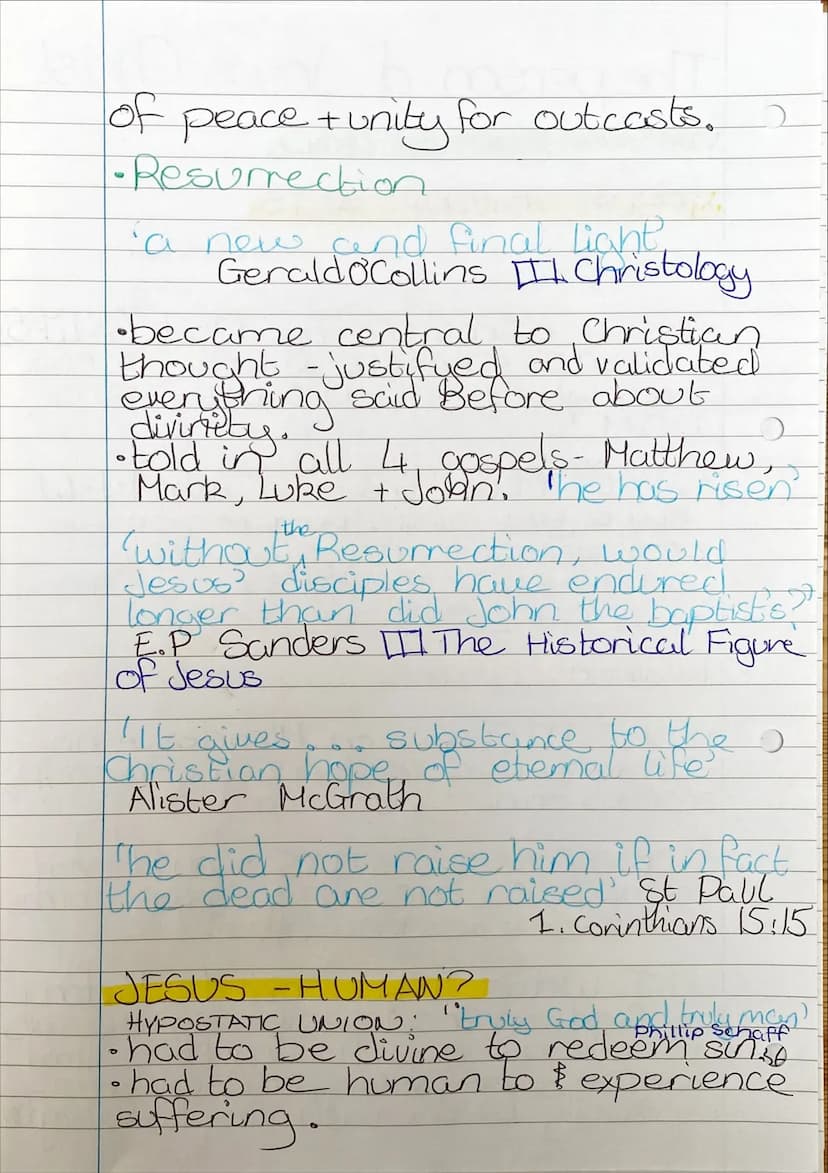 of peace + unity for outcasts.
• Resurrection
'a new and final light'
Gerald O'Collins Christology
• became central to Christian
thought - justifyed and validated
everything said Before about
divinity.
• told in all 4 gospels - Matthew,
Mark, Luke + John. 'he has risen'
'without the Resurrection, would
Jesus' disciples have endured
longer than did John the baptist's?'
E.P Sanders The Historical Figure
of Jesus
'It gives... substance to the
Christian hope of eternal life'
Alister McGrath
'he did not raise him if in fact
the dead are not raised' St Paul
1. Corinthians 15:15
JESUS - HUMAN?
HYPOSTATIC UNION: 'truly God and truly man'
Phillip Schaff
• had to be divine to redeem sins
• had to be human to experience
suffering.